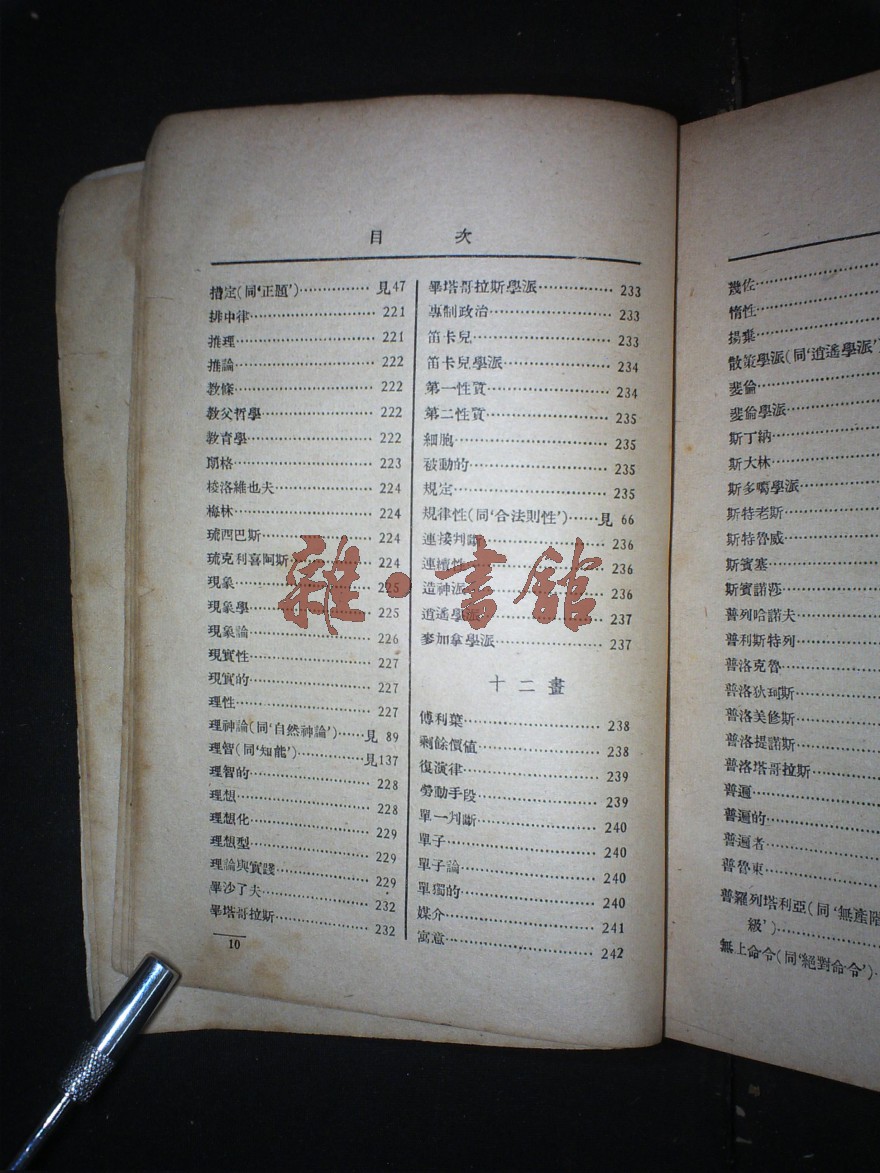 目 次
措定(同‘正題’)…………見47
排中律…………221
推理…………221
推論…………222
教條…………222
教父哲學…………222
教育學…………222
…………223
棱洛維也夫…………224
梅林…………224
琉西巴斯…………224
琉克利喜阿斯…………224
現象…………225
現象學…………225
現象論…………226
現實性…………227
現實的…………227
理性…………227
理神論(同‘自然神論’)……見 89
理智(同‘知能’)…………見137
理智的…………228
理想…………228
理想化…………229
理想型…………229
理論與實踐…………229
畢沙了夫…………232
畢塔哥拉斯…………232
10
畢塔哥拉斯學派…………233
專制政治…………233
笛卡兒…………233
笛卡兒學派…………234
第一性質…………234
第二性質…………235
細胞…………235
被動的…………235
規定…………235
規律性(同‘合法則性’)……見 66
連接判斷…………236
連續性…………236
造神派…………236
逍遙學派…………237
麥加拿學派…………237
十二畫
傅利葉…………238
剩餘價值…………238
復演律…………239
勞動手段…………239
單一判斷…………240
單子…………240
單子論…………240
單獨的…………240
媒介…………241
寓意…………242
幾佐…………
惰性…………
揚棄…………
散策學派(同‘逍遙學派’)
斐倫…………
斐倫學派…………
斯丁納…………
斯大林…………
斯多噶學派…………
斯特老斯…………
斯特魯威…………
斯賓塞…………
斯賓諾莎…………
普列哈諾夫…………
普利斯特列…………
普洛克魯…………
普洛狄珂斯…………
普洛美修斯…………
普洛提諾斯…………
普洛塔哥拉斯…………
普遍…………
普遍的…………
普遍者…………
普魯東…………
普羅列塔利亞(同‘無產階
級’)…………
無上命令(同‘絕對命令’)…
雜·書館